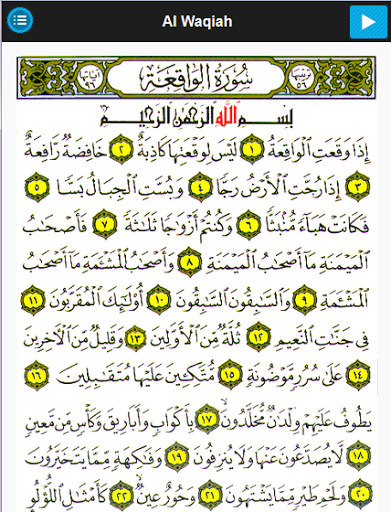 Al Waqiah
ترتيبها ٥٦ سُورَةُ الْوَاقِعَةِ آياتها ٩٦
بِسْمِ اللَّهِ الرَّحْمَٰنِ الرَّحِيمِ
إِذَا وَقَعَتِ الْوَاقِعَةُ ١ لَيْسَ لِوَقْعَتِهَا كَاذِبَةٌ ٢ خَافِضَةٌ رَّافِعَةٌ
٣ إِذَا رُجَّتِ الْأَرْضُ رَجًّا ٤ وَبُسَّتِ الْجِبَالُ بَسًّا ٥
فَكَانَتْ هَبَاءً مُّنبَثًّا ٦ وَكُنتُمْ أَزْوَاجًا ثَلَاثَةً ٧ فَأَصْحَابُ
الْمَيْمَنَةِ مَا أَصْحَابُ الْمَيْمَنَةِ ٨ وَأَصْحَابُ الْمَشْئَمَةِ مَا أَصْحَابُ
الْمَشْئَمَةِ ٩ وَالسَّابِقُونَ السَّابِقُونَ ١٠ أُولَٰئِكَ الْمُقَرَّبُونَ ١١
فِي جَنَّاتِ النَّعِيمِ ١٢ ثُلَّةٌ مِّنَ الْأَوَّلِينَ ١٣ وَقَلِيلٌ مِّنَ الْآخِرِينَ
١٤ عَلَىٰ سُرُرٍ مَّوْضُونَةٍ ١٥ مُّتَّكِئِينَ عَلَيْهَا مُتَقَابِلِينَ ١٦
يَطُوفُ عَلَيْهِمْ وِلْدَانٌ مُّخَلَّدُونَ ١٧ بِأَكْوَابٍ وَأَبَارِيقَ وَكَأْسٍ مِّن مَّعِينٍ
١٨ لَّا يُصَدَّعُونَ عَنْهَا وَلَا يُنزِفُونَ ١٩ وَفَاكِهَةٍ مِّمَّا يَتَخَيَّرُونَ
٢٠ وَلَحْمِ طَيْرٍ مِّمَّا يَشْتَهُونَ ٢١ وَحُورٌ عِينٌ ٢٢ كَأَمْثَالِ اللُّؤْلُؤِ